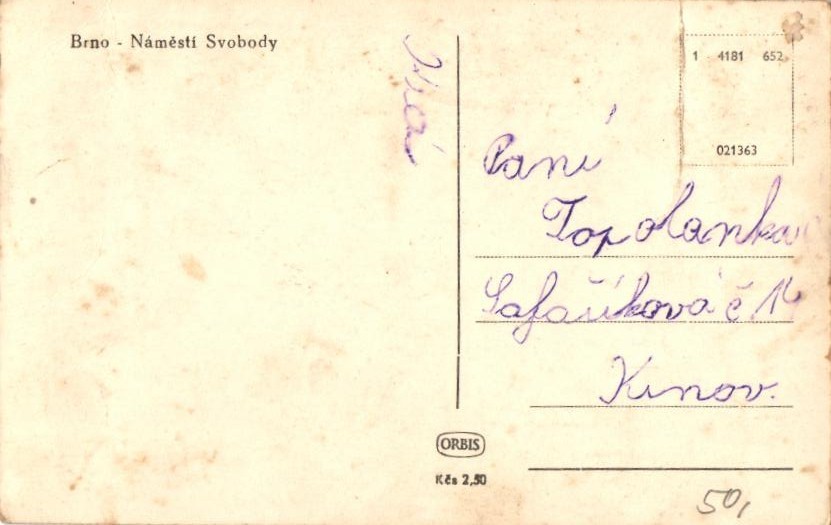 Brno - Náměstí Svobody
1 4181 652
021363
Paní
Topolanková
Šafaříková č 14
Kunov.
ORBIS
Kčs 2,50
50,